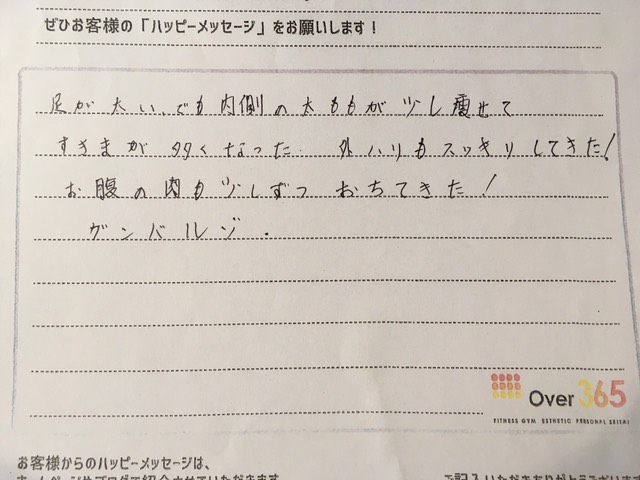 ぜひお客様の「ハッピーメッセージ」をお願いします！
足が太い、でも内側の太ももが少し痩せて
すきまが多くなった 外ハリもスッキリしてきた！
お腹の肉も少しずつおちてきた！
ガンバルゾ．
Over 365
FITNESS GYM ESTHETIC PERSONAL SEITAI
お客様からのハッピーメッセージは、
ホームページやブログで紹介させていただきます
ご記入いただきありがとうございます